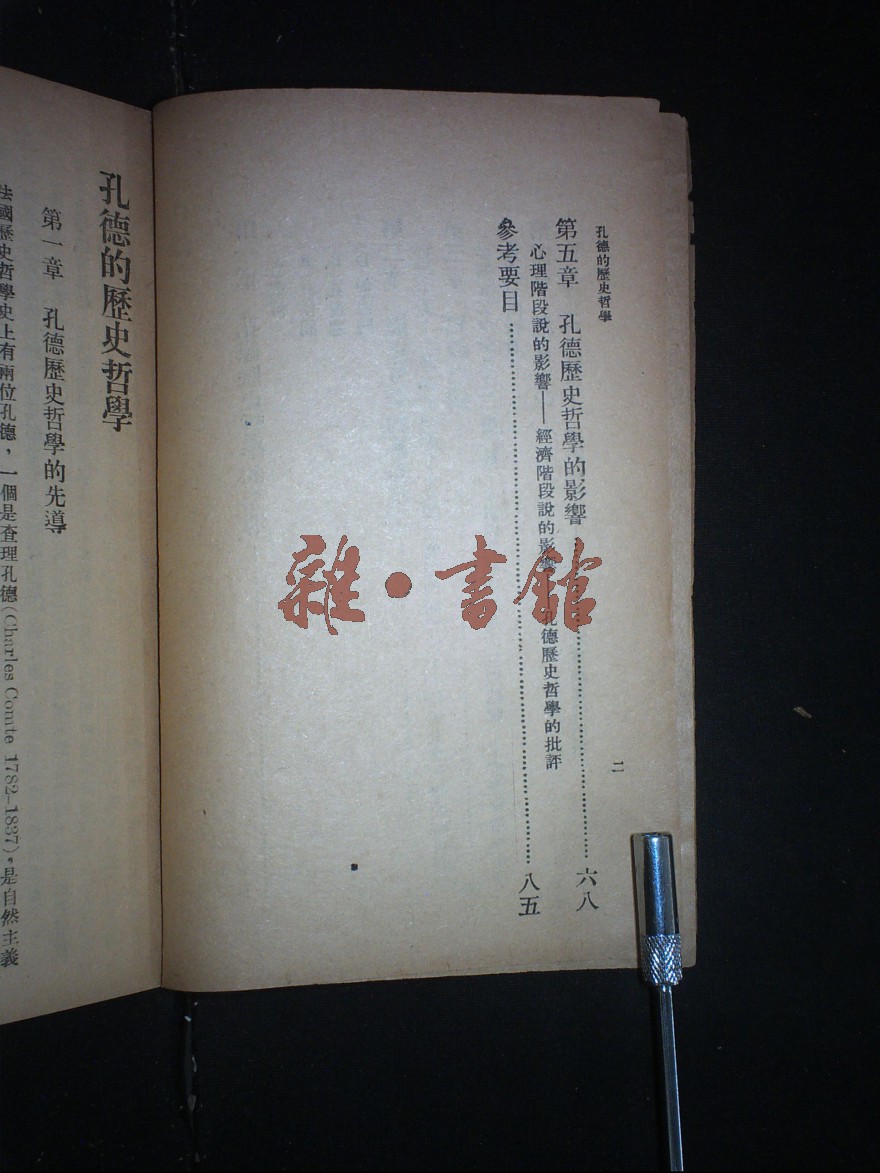 孔德的歷史哲學
二
第五章　孔德歷史哲學的影響……六八
心理階段說的影響——經濟階段說的影響——孔德歷史哲學的批評
參考要目……八五
孔德的歷史哲學
第一章　孔德歷史哲學的先導
法國歷史哲學史上有兩位孔德，一個是查理孔德(Charles Comte 1782-1837)。是自然主義
雜·書館